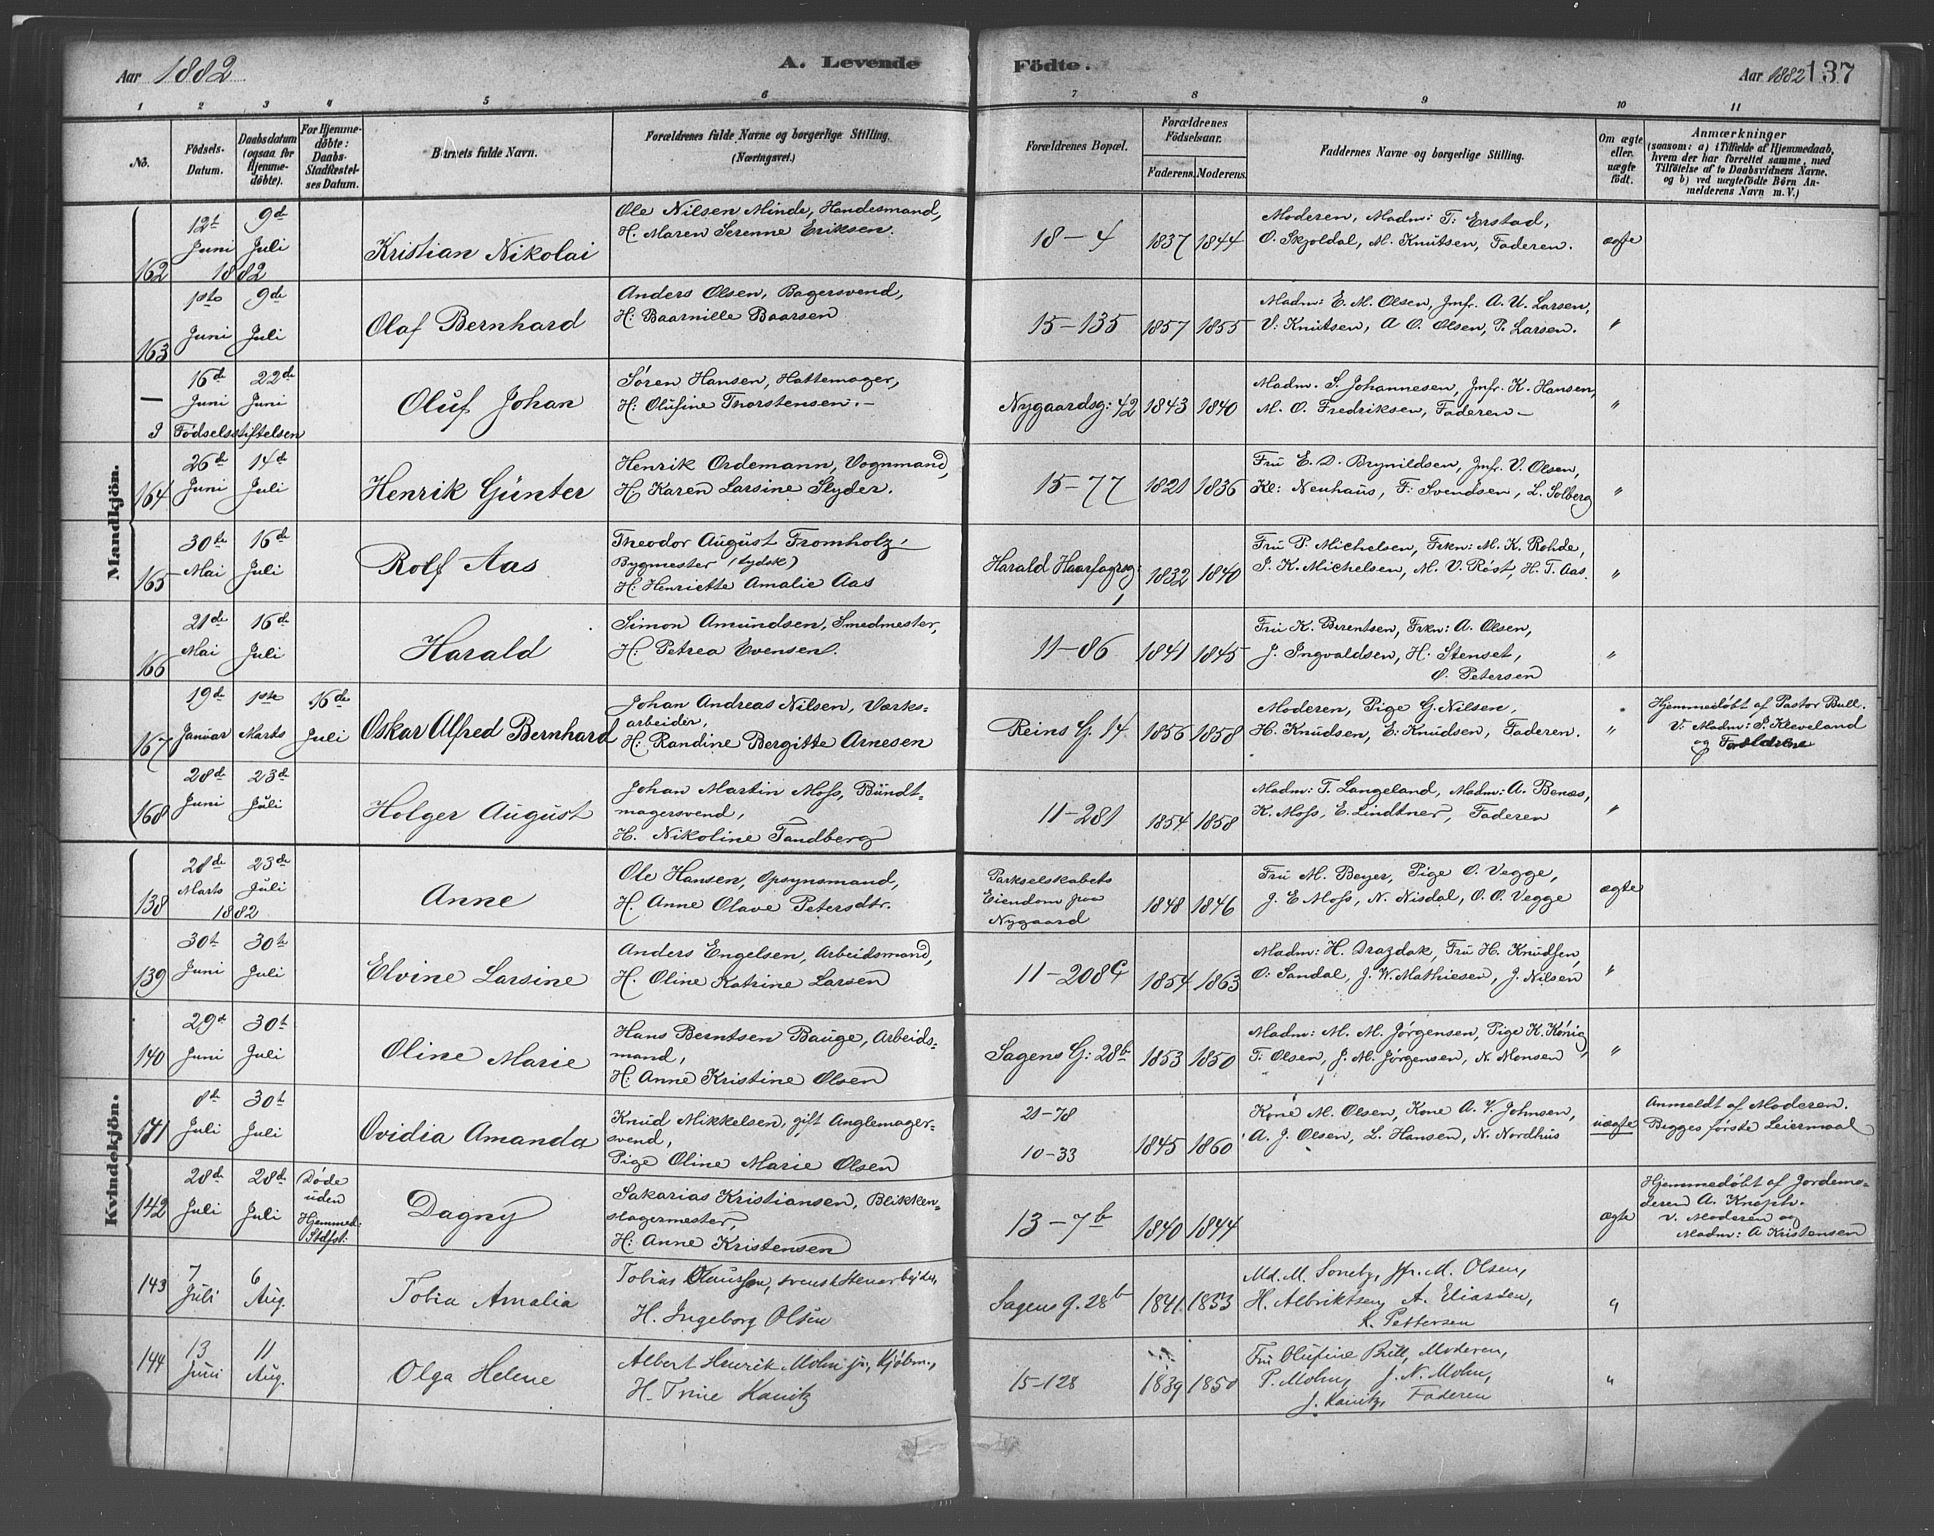 Aar 1882. A. Levende Födte. Aar 1882 137
1 2 3 4 5 6 7 8 9 10 11
No. Födsels-Datum. Daabsdatum (ogsaa for Hjemme-döbte). For Hjemme-döbte: Daabs-Stadfæstel-ses Datum. Barnets fulde Navn. Forældrenes fulde Navne og borgerlige Stilling. (Næringsvei.) Forældrenes Bopæl. Forældrenes Födselsaar. Faderens. Moderens. Faddernes Navne og borgerlige Stilling. Om ægte eller uægte födt. Anmærkninger (saasom: a) i Tilfælde af Hjemmedaab, hvem der har forrettet samme, med Tilföielse af to Daabsvidners Navne. og b) ved uægtefödte Börn An-melderens Navn m. V.)
Mandkjön.
162 12t Juni 9de Juli 1882 Kristian Nikolai
Ole Nilsen Minde, Handesmand,
H. Maren Serenne Eriksen.
18-4 1837 1844
Moderen, Madm: T. Erstad,
O. Skjoldal, M. Knutsen, Faderen.
ægte
163 1ste Juni 9de Juli Olaf Bernhard
Anders Olsen, Bagersvend,
H: Baarnille Baarsen
15-135 1857 1855
Madm: E. M. Olsen, Jmfr. A. U. Larsen,
V. Knutsen, A O. Olsen, P. Larsen.
"
— 16de Juni 22de Juni Oluf Johan
I Födselsstiftelsen
Søren Hansen, Hattemager,
H: Olufine Thorstensen.-
Nygaardsg: 42 1843 1840
Madm. S. Johannesen, Jmfr. K. Hansen,
M. O. Fredriksen, Faderen-
"
164 26de Juni 14de Juli Henrik Günter
Henrik Ordemann, Vognmand,
H. Karen Larsine Slyder.
15-77 1821 1836
Fru E. D. Brynildsen, Jmfr. V. Olsen,
Kl: Neuhaus, F: Svendsen, L. Solberg
"
165 30te Mai 16de Juli Rolf Aas
Theodor August Fromholz,
Bygmester (tydsk)
H: Henriette Amalie Aas
Harald Haarfagrsg: 1 1832 1840
Fru P. Michelsen, Frkn: M. K. Rohde,
P. K. Michelsen, M. V. Røst, H. T. Aas.
"
166 21de Mai 16de Juli Harald
Simon Amundsen, Smedmester,
H: Petrea Evensen.
11-86 1841 1845
Fru K. Berentsen, Frkn: A. Olsen,
J. Ingvaldsen, H. Stenset,
O. Petersen
"
167 19de Januar 1ste Marts 16de Juli Oskar Alfred Bernhard
Johan Andreas Nilsen, Værks-
arbeider,
H: Randine Bergitte Arnesen
Reins G. 14 1856 1858
Moderen, Pige G. Nilsen,
H. Knudsen, E. Knudsen, Faderen.
"
Hjemmedøbt af Pastor Bull.
V. Madm: S. Kleveland
og Forældrene
168 28de Juni 23de Juli Holger August
Johan Martin Moss, Bundt-
magersvend,
H. Nikoline Tandberg
11-281 1854 1858
Madm: T. Langeland, Madm: A. Benæs,
K. Moss, E. Lindtner, Faderen
"
Kvindekjön.
138 28de Marts 23de Juli 1882 Anne
Ole Hansen, Opsynsmand,
H. Anne Olave Petersdtr.
Parkselskabets
Eiendom paa
Nygaard
1848 1846
Fru M. Beyer, Pige O. Vegge,
J. E Moss, N. Nisdal, O. O. Vegge
ægte
139 30t Juni 30t Juli Elvine Larsine
Anders Engelsen, Arbeidsmand,
H. Oline Katrine Larsen
11-208c 1854 1863
Madm: H. Drazdak, Fru H. Knudsen,
O: Sandal, J. W. Mathiesen, J. Nilsen
"
140 29d Juni 30t Juli Oline Marie
Hans Berntsen Bauge, Arbeids-
mand,
H: Anne Kristine Olsen
Sagens G: 28b 1853 1850
Madm: M. M. Jørgensen, Pige K. König,
T. Olsen, J. M. Jørgensen, N. Monsen
"
141 8d Juli 30t Juli Ovidia Amanda
Knud Mikkelsen, gift Anglemager-
svend,
Pige Oline Marie Olsen
21-78
10-33
1845 1860
Kone M. Olsen, Kone A. V. Johnsen,
A. J. Olsen, L. Hansen, N. Nordhus
uægte
Anmeldt af Moderen.
Begges første Leiermaal
142 28d Juli 28d Juli Døde uden Hjemmed: Stdfst: Dagny
Sakarias Kristiansen, Blikken-
slagermester,
H: Anne Kristensen
13-7b 1840 1844
ægte
Hjemmedøbt af Jordemo-
deren A. Knoph.
V. Moderen og
Madm: A Kristensen
143 7 Juli 6 Aug. Tobia Amalia
Tobias Claussen, svensk Stenarbeider,
H. Ingeborg Olsen
Sagens G. 28b 1841 1853
Md. M. Soneby, Jfr. M. Olsen,
H. Albriktsen, A. Eliassen,
K. Pettersen
"
144 13 Juni 11 Aug. Olga Helene
Albert Henrik Mohn jr., Kjøbm.,
H. Trine Kanitz
15-128 1839 1850
Fru Olufine Bull, Moderen,
P. Mohn, J. N. Mohn,
J. Kanitz, Faderen
"